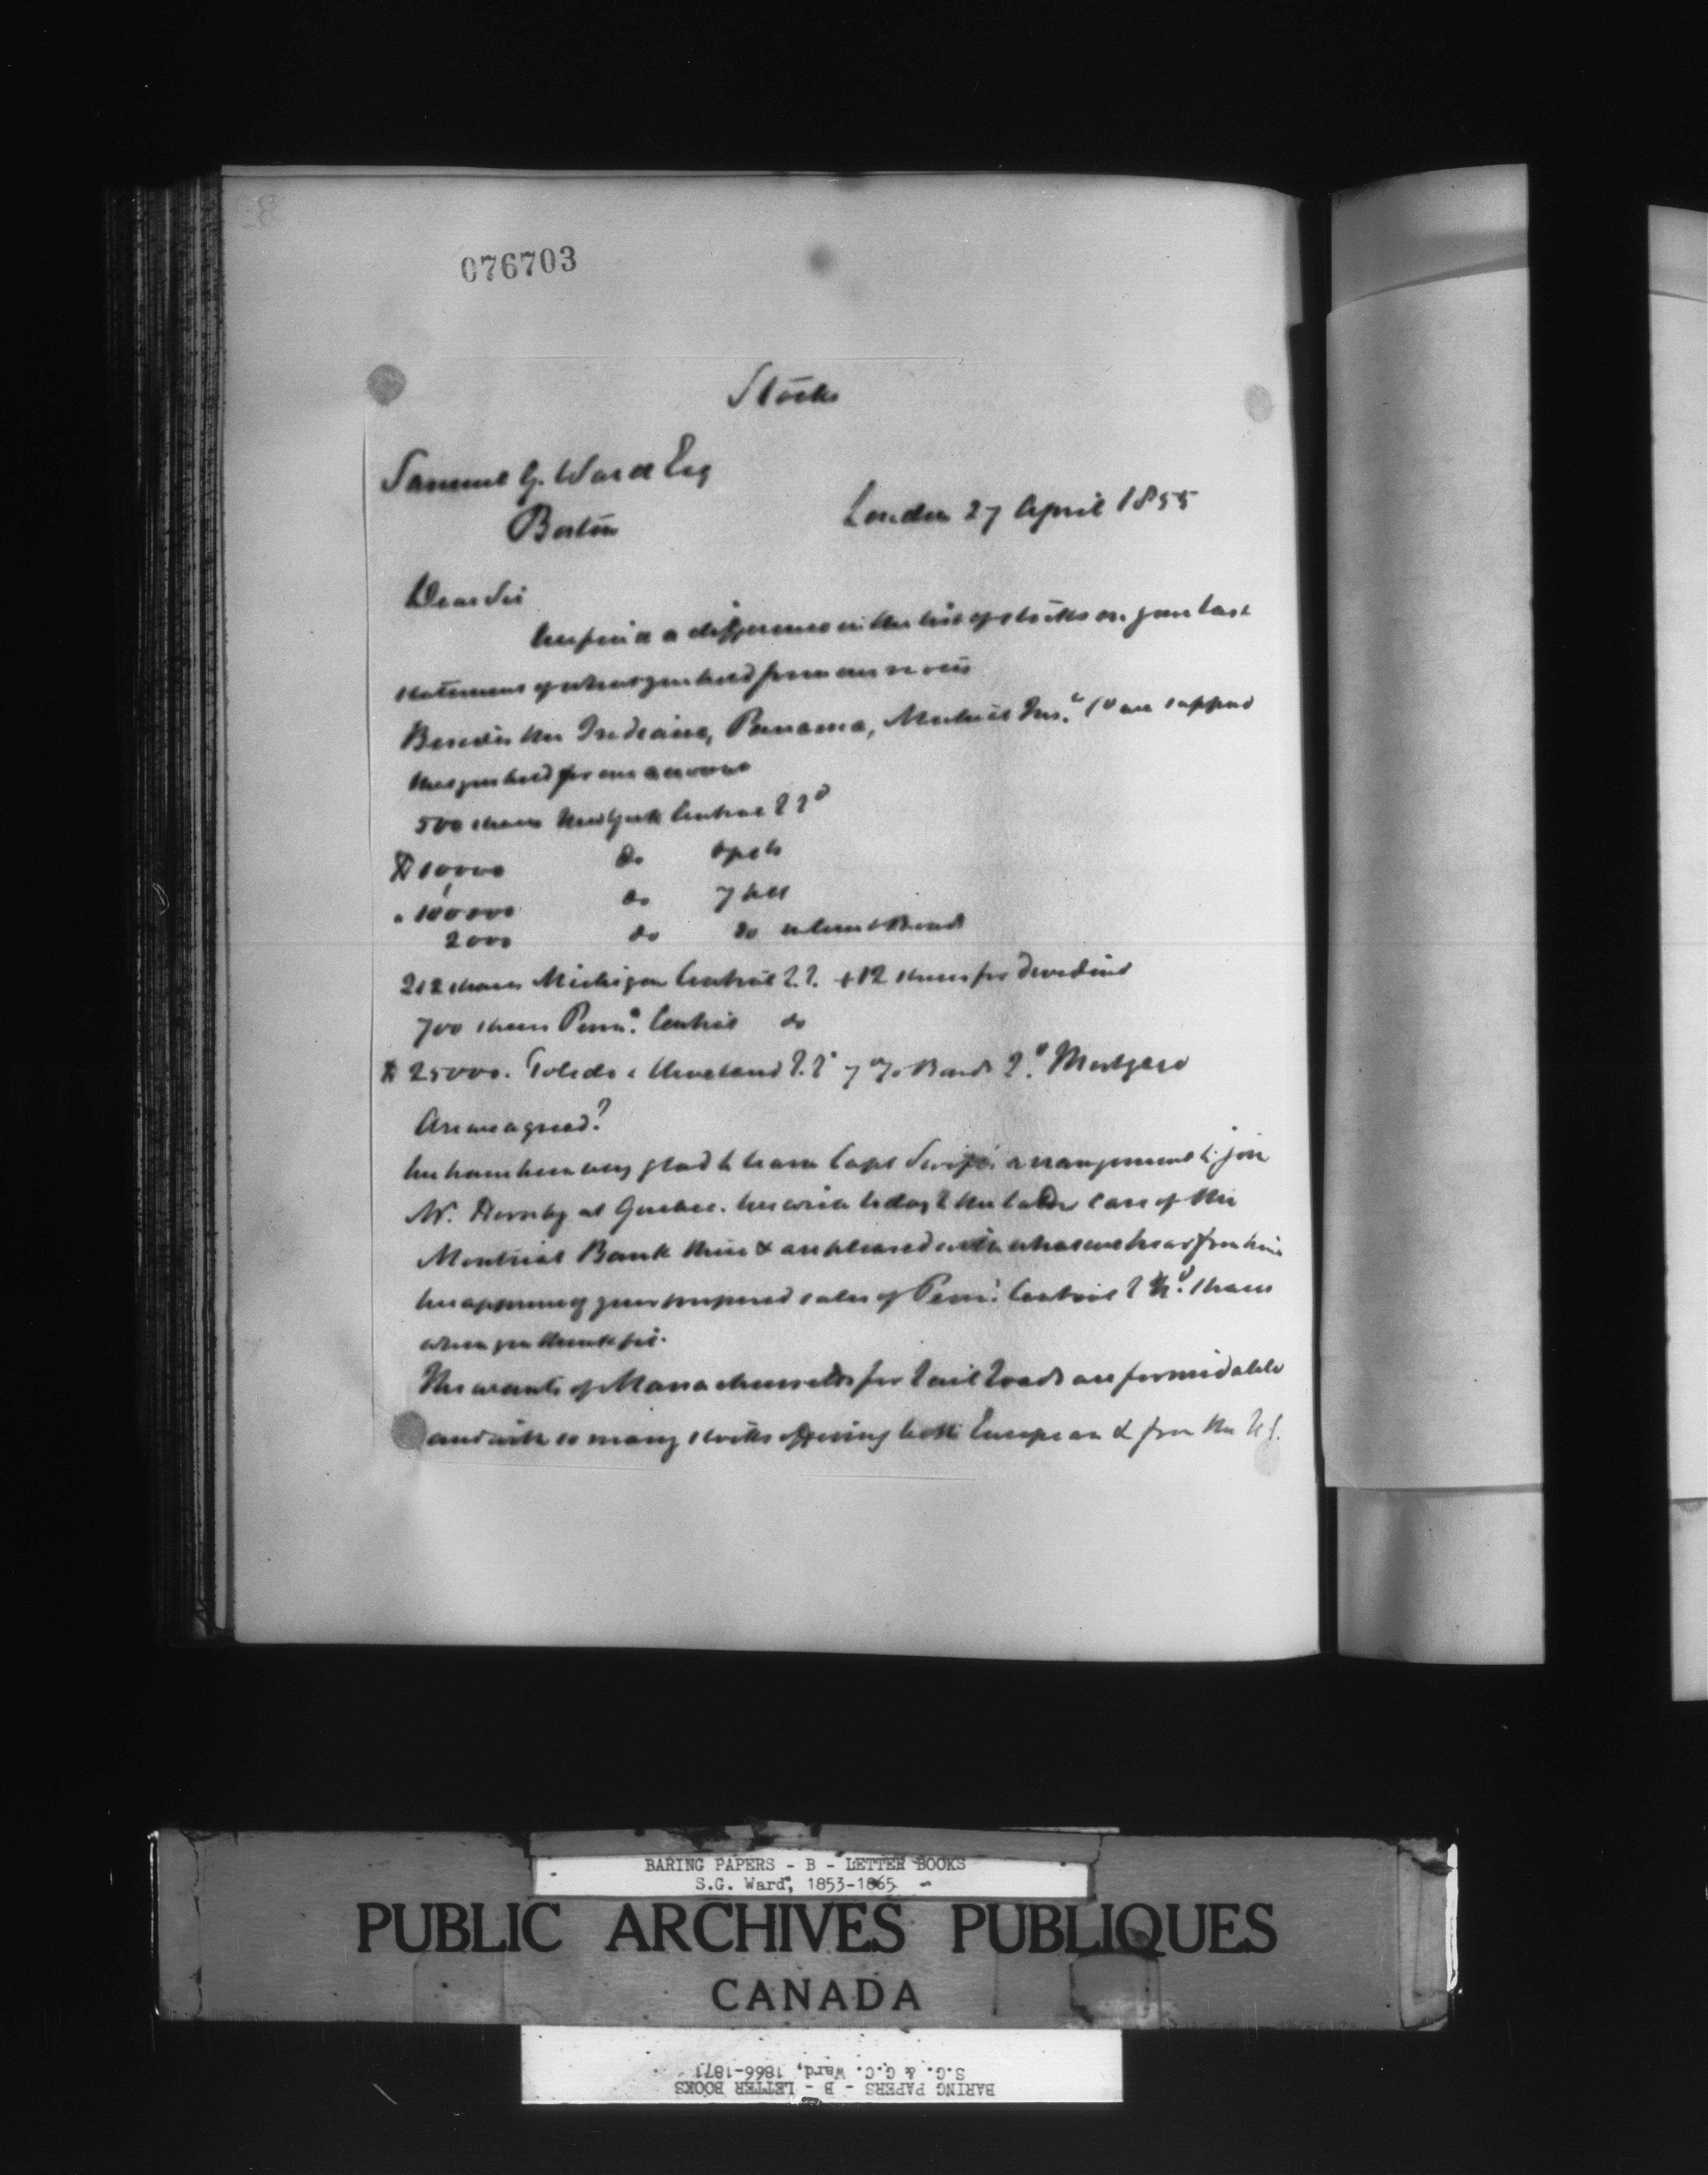 076703
Stocks
Samuel G. Ward Esq
Boston
London 27 April 1855
Dear Sir
We find a difference in the list of stocks on your last
statement of what you hold from our views
Besides the Indiana, Panama, Mutual Ins. we suppose
that you hold for our account
500 shares New York Central R Rd
$10,000 do 6 pcts
" 100000 do 7 pcts
2000 do do interest Bonds
212 shares Michigan Central R.R. + 12 shares for Dividend
700 shares Penna. Central do
$25000. Toledo & Cleveland R.R. 7 % Bonds 2d. Mortgage
Are we agreed?
We have been very glad to learn Capt Swift's arrangement to join
Mr. Hornby at Quebec. We write today to the latter care of the
Montreal Bank there & are pleased with what we hear from him
We approve of your proposed sales of Penn. Central R Rd. shares
when you think fit.
The wants of Massachusetts for Rail Roads are formidable
and with so many stocks offering both European & from the U S.
BARING PAPERS - B - LETTER BOOKS
S.G. Ward, 1853-1865
PUBLIC ARCHIVES PUBLIQUES
CANADA
BARING PAPERS - B - LETTER BOOKS
S.G. & G.C. Ward, 1866-1871